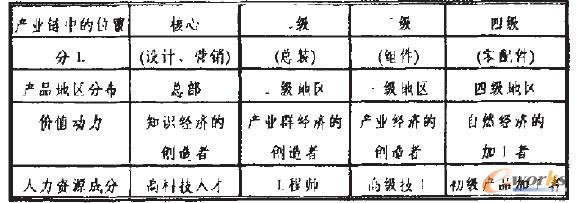 产业链中的位置 核心 级 级 四级
分工 (设计、营销) (总装) (组件) (零配件)
产品地区分布 总部 级地区 级地区 四级地区
价值动力 知识经济的 产业群经济的 产业经济的 自然经济的
创造者 创造者 创造者 加工者
人力资源成分 高科技人才 工程师 高级技工 初级产品加 者
e-works